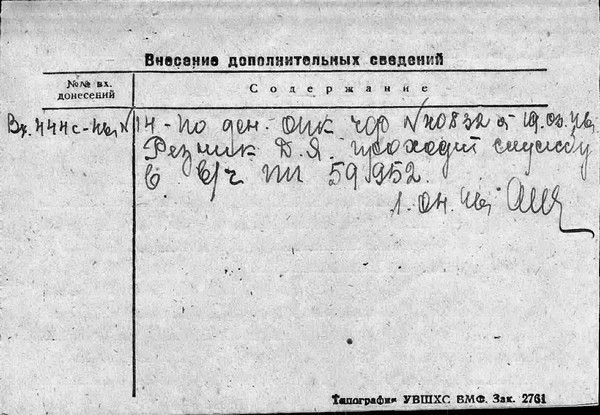 Внесение дополнительных сведений
№№ вх. донесений
Содержание
Вх. 444с-46г
14 - по дон. ОПК ЧФ №20832 от 19.03.46г
Резник Д.Я. проходит службу
в в/ч пп 59952.
46г
Типография УВШХС ВМФ. Зак. 2761